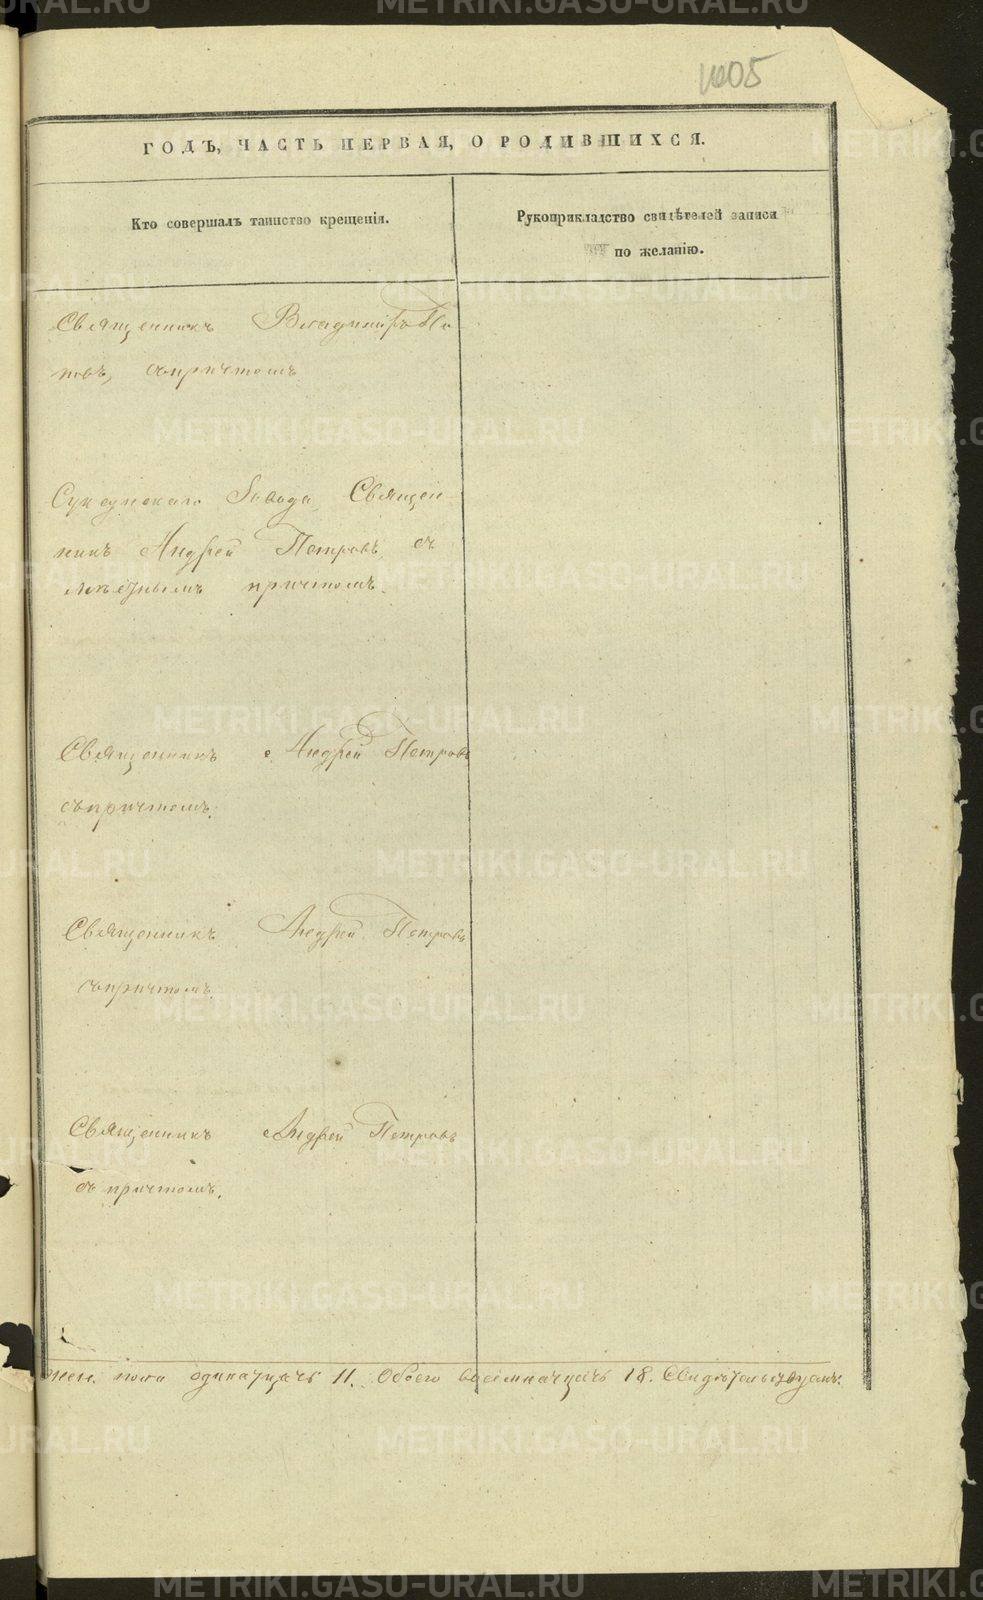 1005
ГОДЪ, ЧАСТЬ ПЕРВАЯ, О РОДИВШИХСЯ.
Кто совершалъ таинство крещенія.
Рукоприкладство свидѣтелей записи
по желанію.
Священникъ Владиміръ По
повъ, съ причтомъ
Суксунскаго Завода Священ
никъ Андрей Петровъ съ
мѣстнымъ причтомъ.
Священникъ Андрей Петровъ
съ причтомъ.
Священникъ Андрей Петровъ
съ причтомъ.
Священникъ Андрей Петровъ
съ причтомъ.
жен. пола одинатцать 11. Обоего восемнатцать 18. Свидѣтельствуемъ.
METRIKI.GASO-URAL.RU